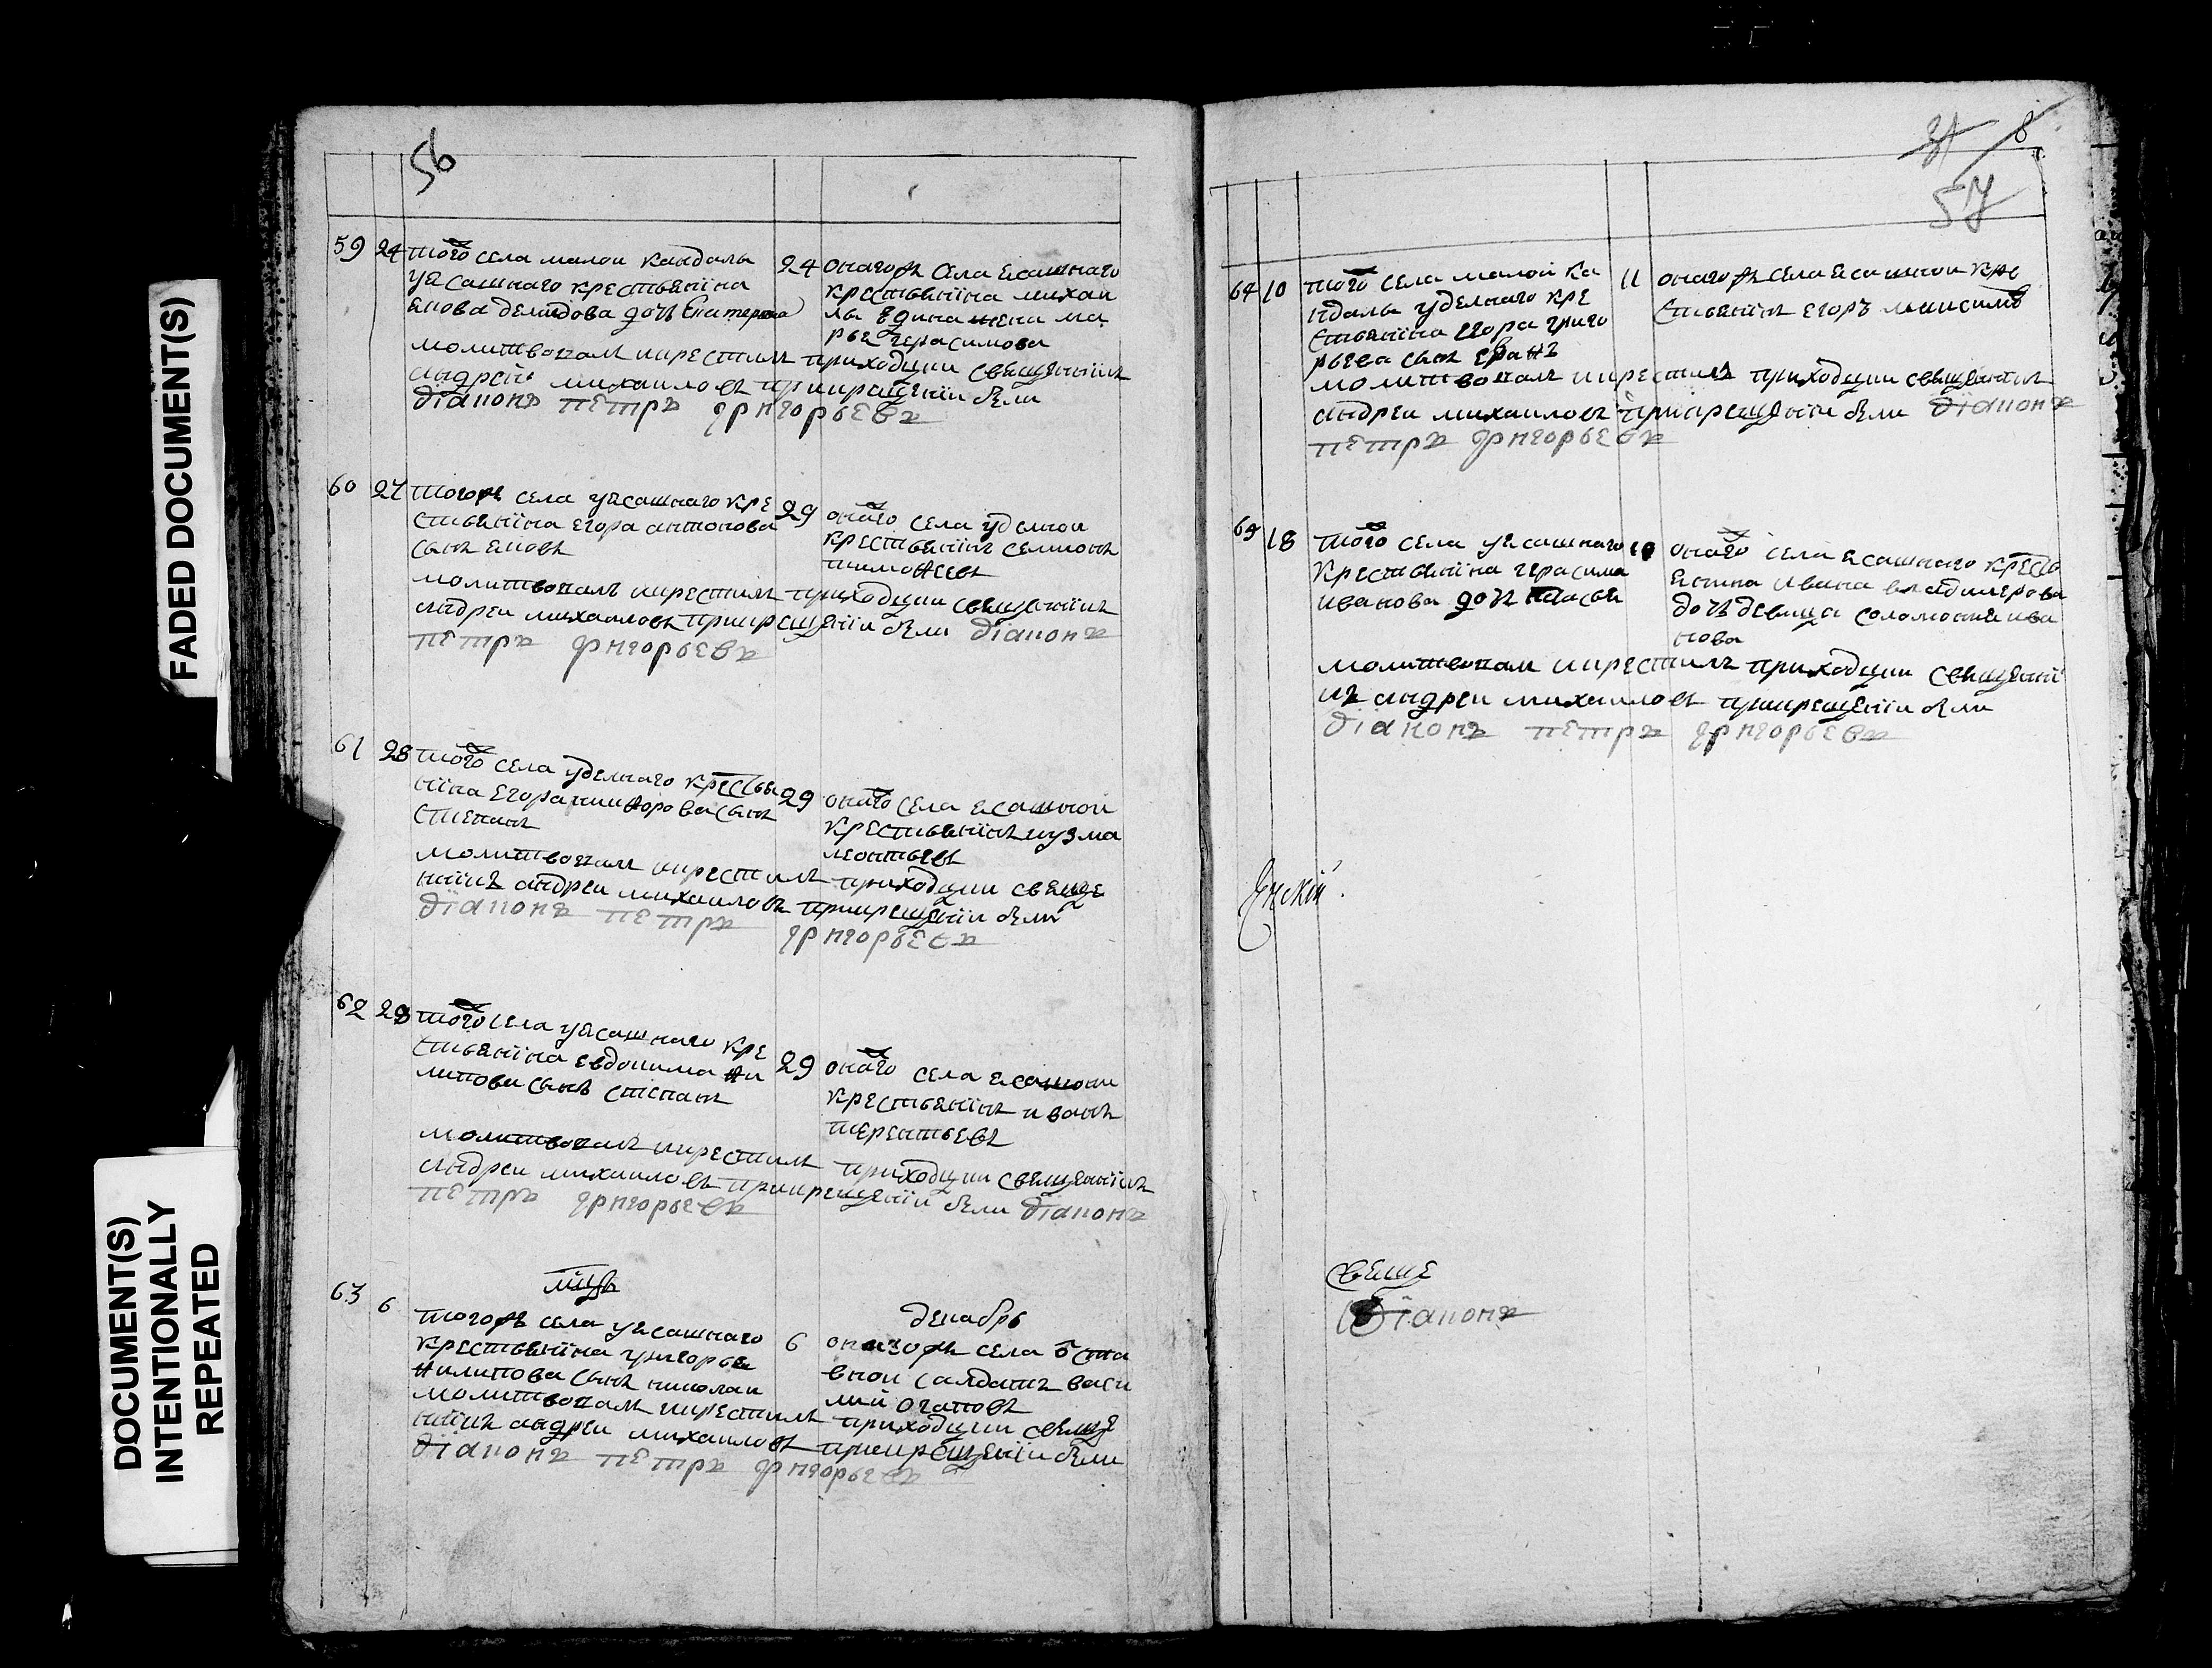 FADED DOCUMENT(S)
DOCUMENT(S)
INTENTIONALLY
REPEATED
56
59 24 того села малои кандалы
уясашнаго крестьянїна
якова демидова дочь Екатерина
24 оногожъ села ясашнаго
крестьянїна михаи
ла едина жена ма
рья герасимова
молитвовалъ икрестилъ приходцки свещеннїкъ
андреи михаиловъ прикрещенїи были
дїаконъ петръ григорьевъ
60 27 тогожъ села уясашнаго кре
стьянїна егора антонова
сынъ яковъ
29 онаго села уделнои
крестьянїнъ семионъ
тимоѳеевъ
молитвовалъ икрестилъ приходцки свещеннїкъ
андреи михаиловъ прикрещенїи были дїаконъ
петръ григорьевъ
61 28 того села уделнаго кресьья
нїна егора никиѳорова сынъ
степанъ
29 онаго села ясашнои
крестьянїнъ кузма
леонтьевъ
молитвовалъ икрестилъ приходцки свеще
ннїкъ андреи михаиловъ прикрещенїи были
дїаконъ петръ григорьевъ
62 28 того села уясашнаго кре
стьянїна евдокима ѳи
липова сынъ степанъ
29 онаго села ясашнои
крестьянїнъ иванъ
терентьевъ
молитвовалъ икрестилъ приходцки свещеннїкъ
андреи михаиловъ прикрещенїи были дїаконъ
петръ григорьевъ
мцъ декабрь
63 6 тогожъ села уясашнаго
крестьянїна григорья
ѳилипова сынъ николаи
6 оногожъ села ѿста
внои салдатъ васи
лий агаповъ
молитвовалъ икрестилъ приходцки свеще
ннїкъ андреи михаиловъ прикрещенїи были
дїаконъ петръ григорьевъ
8
57
64 10 того села малои ка
ндалы уделнаго кре
стьянїна егора григо
рьева сынъ
11 оногожъ села ясашнои кре
стьянїнъ егоръ максимовъ
молитвовалъ икрестилъ приходцки свещеннїкъ
андреи михаиловъ прикрещенїи были дїаконъ
петръ григорьевъ
65 18 того села уясашнаго
крестьянїна герасима
иванова дочь
онаго села ясашнаго кресть
янина ивана владимерова
дочь девица соломония ива
нова
молитвовалъ икрестилъ приходцки свещеннї
къ андреи михаиловъ прикрещенїи были
дїаконъ петръ григорьевъ
свеще
дїаконъ